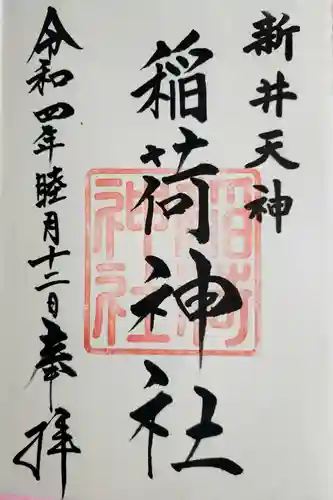 新井天神
稲荷神社
稲荷
神社
令和四年睦月十二日
奉拝